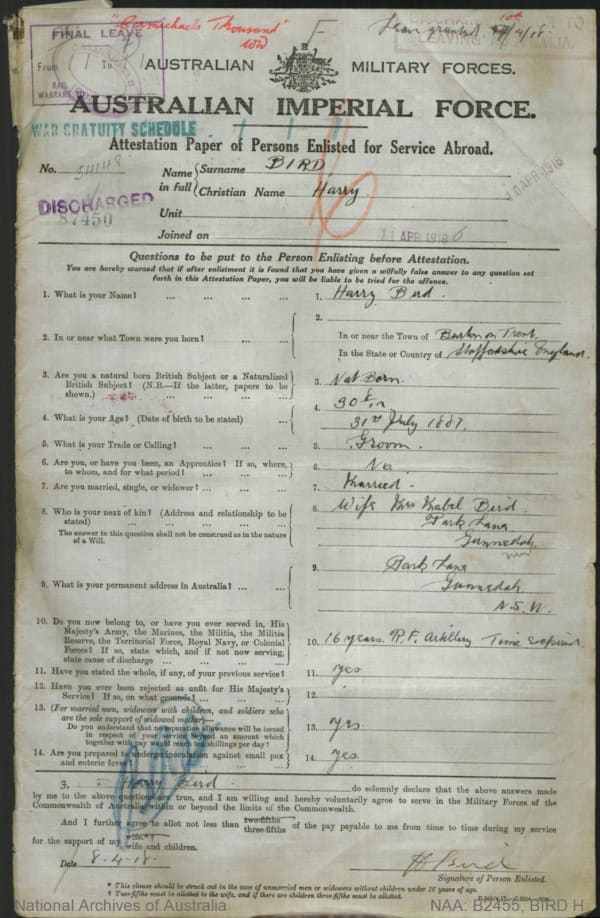 "Carmichaels Thousand"
FINAL LEAVE
From To
RAIL
WARRANT
AUSTRALIAN MILITARY FORCES.
AUSTRALIAN IMPERIAL FORCE.
WAR GRATUITY SCHEDULE
Attestation Paper of Persons Enlisted for Service Abroad.
No.
Name in full { Surname BIRD
Christian Name Harry
10 APR 1918
DISCHARGED
87450
Unit
Joined on 11 APR 1918
Questions to be put to the Person Enlisting before Attestation.
You are hereby warned that if after enlistment it is found that you have given a wilfully false answer to any question set
forth in this Attestation Paper, you will be liable to be tried for the offence.
1. What is your Name? ... ... ... ... 1. Harry Bird.
2.
2. In or near what Town were you born? ... ... In or near the Town of Burton on Trent.
In the State or Country of Staffordshire England.
3. Are you a natural born British Subject or a Naturalized
British Subject? (N.B.—If the latter, papers to be
shown.) ... ... 3. Nat Born.
4. What is your Age? (Date of birth to be stated) ... 4. 30
31st July 1887.
5. What is your Trade or Calling? ... ... ... 5. Groom.
6. Are you, or have you been, an Apprentice? If so, where,
to whom, and for what period? ... ... ... 6. No
7. Are you married, single, or widower? ... ... ... 7. Married.
8. Who is your next of kin? (Address and relationship to be
stated) ... ... ... ... 8. Wife Mrs Mabel Bird.
The answer to this question shall not be construed as in the nature
of a Will.
Park Lane
Gunnedah
NSW
9. What is your permanent address in Australia? ... ... 9. Park Lane
Gunnedah
N.S.W.
10. Do you now belong to, or have you ever served in, His
Majesty's Army, the Marines, the Militia, the Militia
Reserve, the Territorial Force, Royal Navy, or Colonial
Forces? If so, state which, and if not now serving,
state cause of discharge ... ... ... ... 10. 16 years. R.F. Artillery Time expired.
11. Have you stated the whole, if any, of your previous service? 11. yes
12. Have you ever been rejected as unfit for His Majesty's
Service? If so, on what grounds? ... ... 12.
13. (For married men, widowers with children, and soldiers who
are the sole support of widowed mother—
Do you understand that no separation allowance will be issued
in respect of your service beyond an amount which
together with pay would reach shillings per day? 13. yes.
14. Are you prepared to undergo inoculation against small pox
and enteric fever? 14. yes.
I, Harry Bird do solemnly declare that the above answers made
by me to the above questions are true, and I am willing and hereby voluntarily agree to serve in the Military Forces of the
Commonwealth of Australia within or beyond the limits of the Commonwealth.
And I further agree to allot not less than two-fifths three-fifths of the pay payable to me from time to time during my service
for the support of my wife*† wife and children.
Date 8.4.18. H Bird
Signature of Person Enlisted.
* This clause should be struck out in the case of unmarried men or widowers without children under 16 years of age.
† Two-fifths must be allotted to the wife, and if there are children three-fifths must be allotted.
National Archives of Australia NAA: B2455, BIRD H